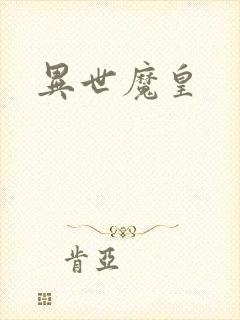 異世魔皇
肯亞